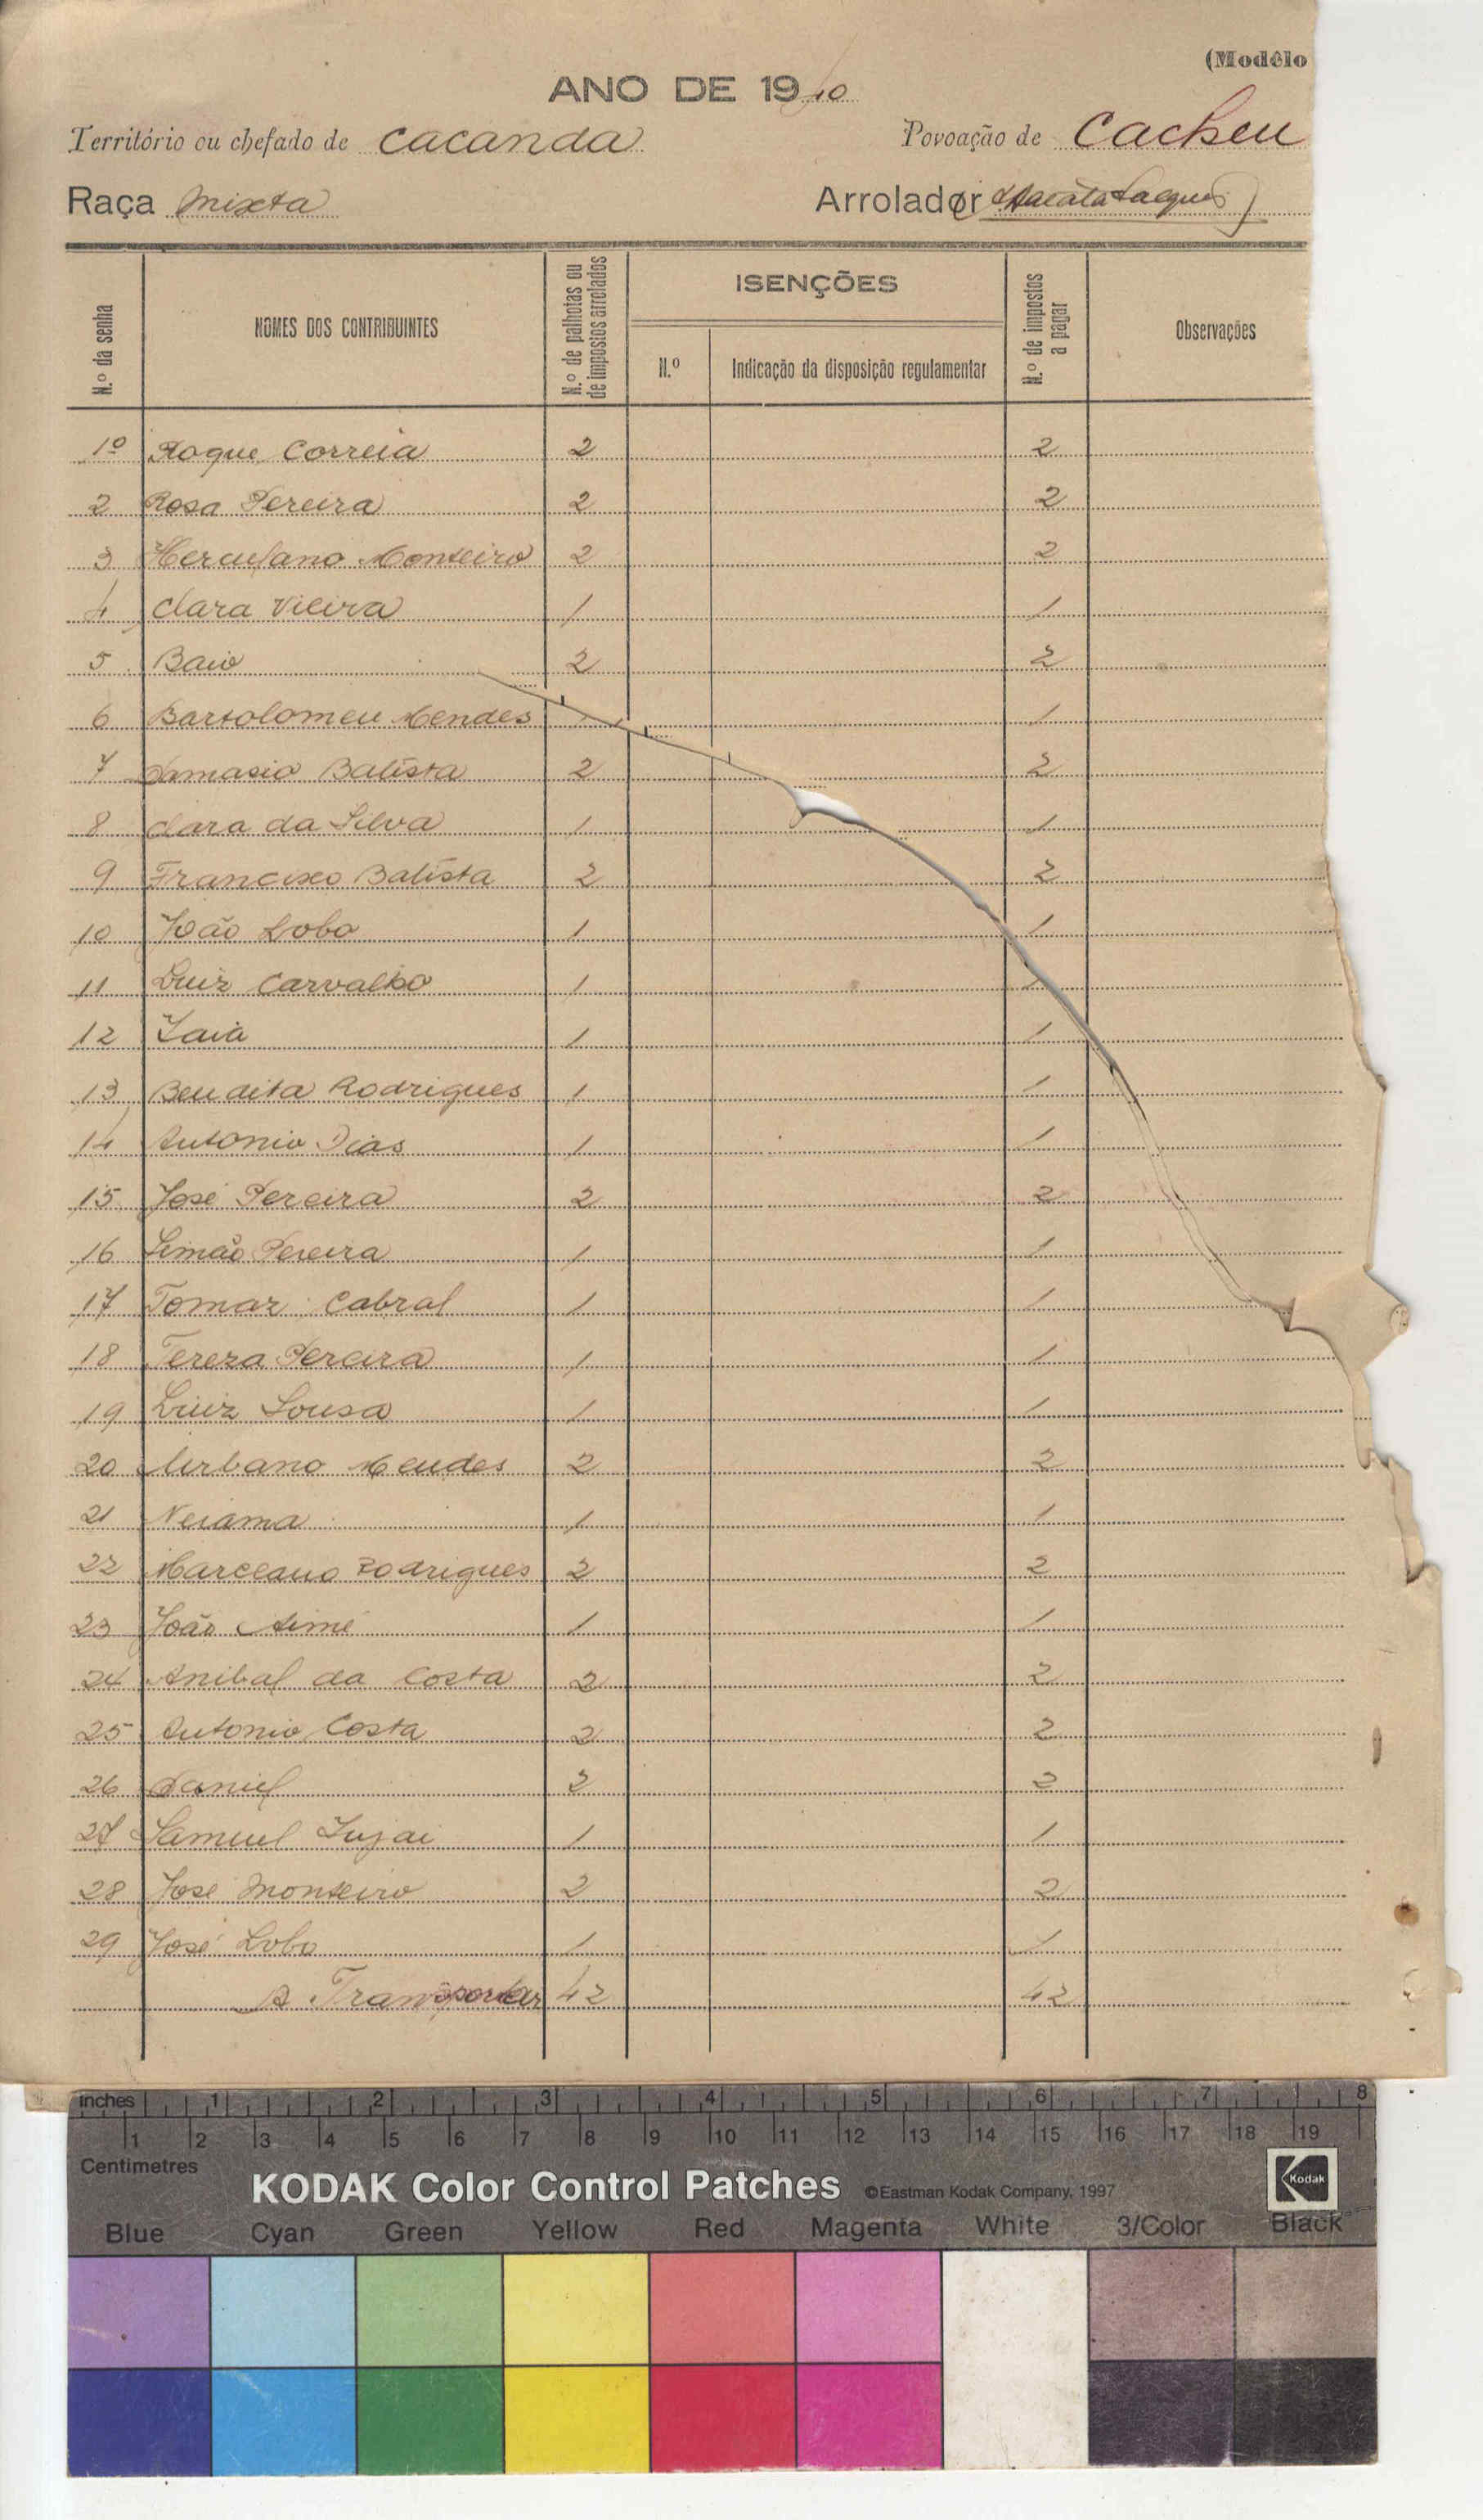 (Modêlo
ANO DE 1940
Território ou chefado de Cacanda Povoação de Cacheu
Raça Mixta Arrolador
N.º da senha NOMES DOS CONTRIBUINTES N.º de palhotas ou de impostos arrolados ISENÇÕES N.º de impostos a pagar Observações
N.º Indicação da disposição regulamentar
1º Roque Correia 2 2
2 Rosa Pereira 2 2
3 Herculano Monteiro 2 2
4 Clara Vieira 1 1
5 Baio 2 2
6 Bartolomeu Mendes 1
7 Damasio Batista 2 2
8 Clara da Silva 1 1
9 Francisco Batista 2 2
10 João Lobo 1 1
11 Luiz Carvalho 1 1
12 1 1
13 Bendita Rodrigues 1 1
14 Antonio Dias 1 1
15 José Pereira 2 2
16 Simão Pereira 1 1
17 Tomaz Cabral 1 1
18 Tereza Pereira 1 1
19 Luiz Sousa 1 1
20 Urbano Mendes 2 2
21 Neiama 1 1
22 Marceano Rodrigues 2 2
23 João 1 1
24 Anibal da Costa 2 2
25 Antonio Costa 2 2
26 Daniel 2 2
27 Samuel 1 1
28 José Monteiro 2 2
29 José Lobo 1 1
A Transportar 42 42
inches 1 2 3 4 5 6 7 8
1 2 3 4 5 6 7 8 9 10 11 12 13 14 15 16 17 18 19
Centimetres
KODAK Color Control Patches ©Eastman Kodak Company, 1997 Kodak
Blue Cyan Green Yellow Red Magenta White 3/Color Black